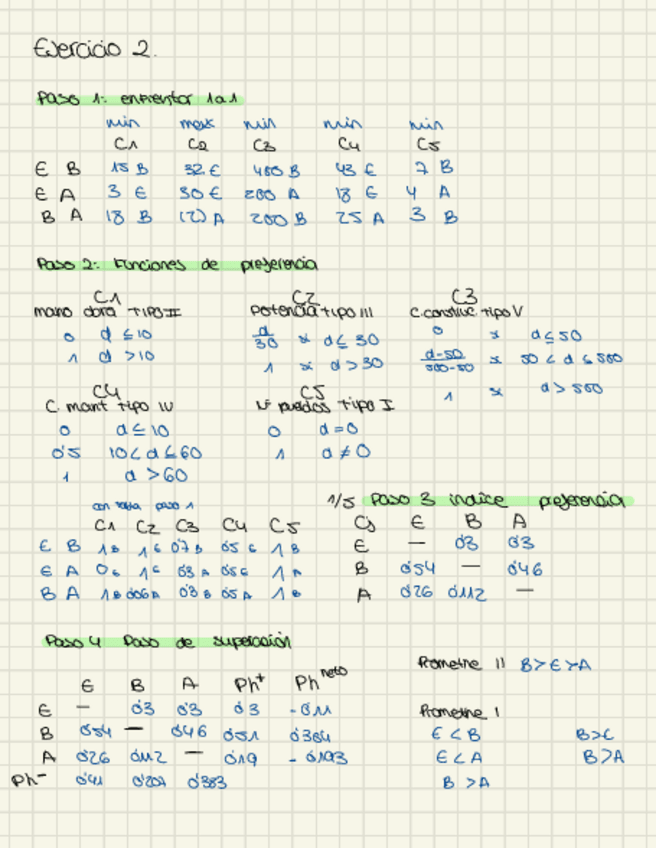 Ejercicio 2.
Paso 1: enfrentar 1a1
min max min min min
C1 C2 C3 C4 C5
E B 15 B 32 E 400 B 43 E 7 B
E A 3 E 30 E 200 A 18 E 4 A
B A 18 B (2) A 200 B 25 A 3 B
Paso 2: Funciones de preferencia
C1 C2 C3
mano obra TIPO II Potencia tipo III C.construc tipo V
0 d ≤ 10 d/30 x d ≤ 30 0 x d ≤ 50
1 d > 10 1 x d > 30 d-50/500-50 x 50 < d ≤ 500
1 x d > 500
C4 C5
C. mant tipo IV tipo I
0 d ≤ 10 0 d = 0
0'5 10 < d ≤ 60 1 d ≠ 0
1 d > 60
con tabla paso 1
1/5 Paso 3 indice preferencia
C1 C2 C3 C4 C5
E B 1 B 1 E 0'7 B 0'5 E 1 B
E A 0 E 1 E 0'3 A 0'5 E 1 A
B A 1 B 0'06 A 0'3 B 0'5 A 1 B
Cj E B A
E — 0'3 0'3
B 0'54 — 0'46
A 0'26 0'112 —
Paso 4 Paso de superación
E B A Ph+ Ph neto
E — 0'3 0'3 0'3 -0'11
B 0'54 — 0'46 0'51 0'304
A 0'26 0'112 — 0'19 -0'193
Ph- 0'41 0'207 0'383
Promethe II B>E>A
Promethe I
E < B B>E
E < A B>A
B > A